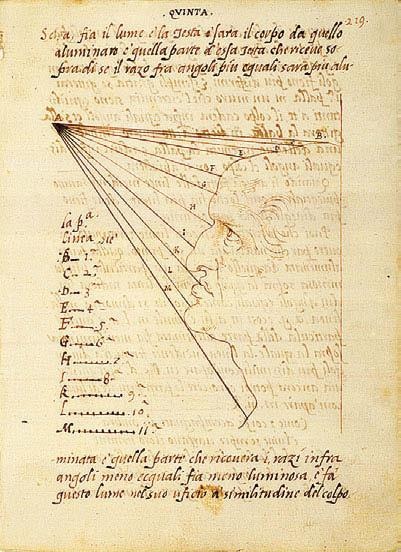 QVINTA.
219.
fia il lume e la Testa e sara il corpo da quello
aluminato e quella parte d essa Testa che riceve so
pra di se il razo fra angoli piu equali sara piu alu-
B.
D
E
F
G
H
I
K
L
M
la pª.
linea sie
B 1ª
C 2ª
D 3ª
E 4ª
F 5ª
G 6ª
H
I 8ª
K 9ª
L 10ª
M 11ª
minata e quella parte che ricevera i, razi infra
angoli meno ecquali fia meno luminosa, e fa
questo lume nel suo uficio a similitudine del colpo.